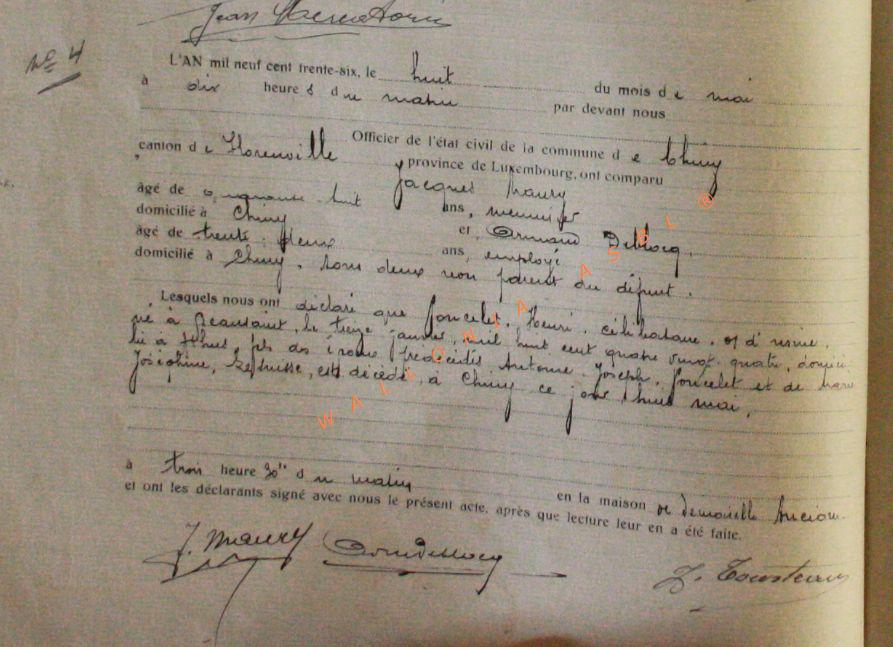 Jean
N° 4
L'AN mil neuf cent trente-six, le huit du mois de mai
à dix heures du matin par devant nous
Officier de l'état civil de la commune de Chiny
canton de Florenville province de Luxembourg, ont comparu
Jacques Maury
âgé de cinquante huit ans, menuisier
domicilié à Chiny et Armand Deblocq,
âgé de trente-deux ans, employé
domicilié à Chiny, tous deux non parent du défunt.
Lesquels nous ont déclaré que Poncelet, Henri, célibataire, d'usine,
né à Beausaint, le treize janvier mil huit cent quatre vingt quatre, domici
lié à Athus, fils des époux Antoine Joseph Poncelet et de Marie
Joséphine, est décédé à Chiny ce jour huit mai,
à trois heure 30 du matin en la maison de demoiselle
et ont les déclarants signé avec nous le présent acte, après que lecture leur en a été faite.
J. Maury
WALLONIA ASBL ©